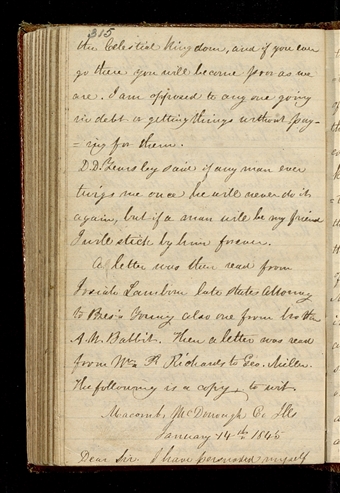 315
the Celestial Kingdom, and if you ever
go there you will become poor as we
are. I am opposed to any one going
in debt or getting things without pay-
=ing for them.
D.D. Yearsley said if any man ever
twigs me once he will never do it
again, but if a man will be my friend
I will stick by him forever.
A letter was then read from
Josiah Lamborn late State Attorney
to Pres. Young also one from brother
A.W. Babbit. Then a letter was read
from Wm R Richards to Geo. Miller.
The following is a copy, to wit
Macomb, McDonough Co Ills
January 14th 1845
Dear Sir I have persuaded myself